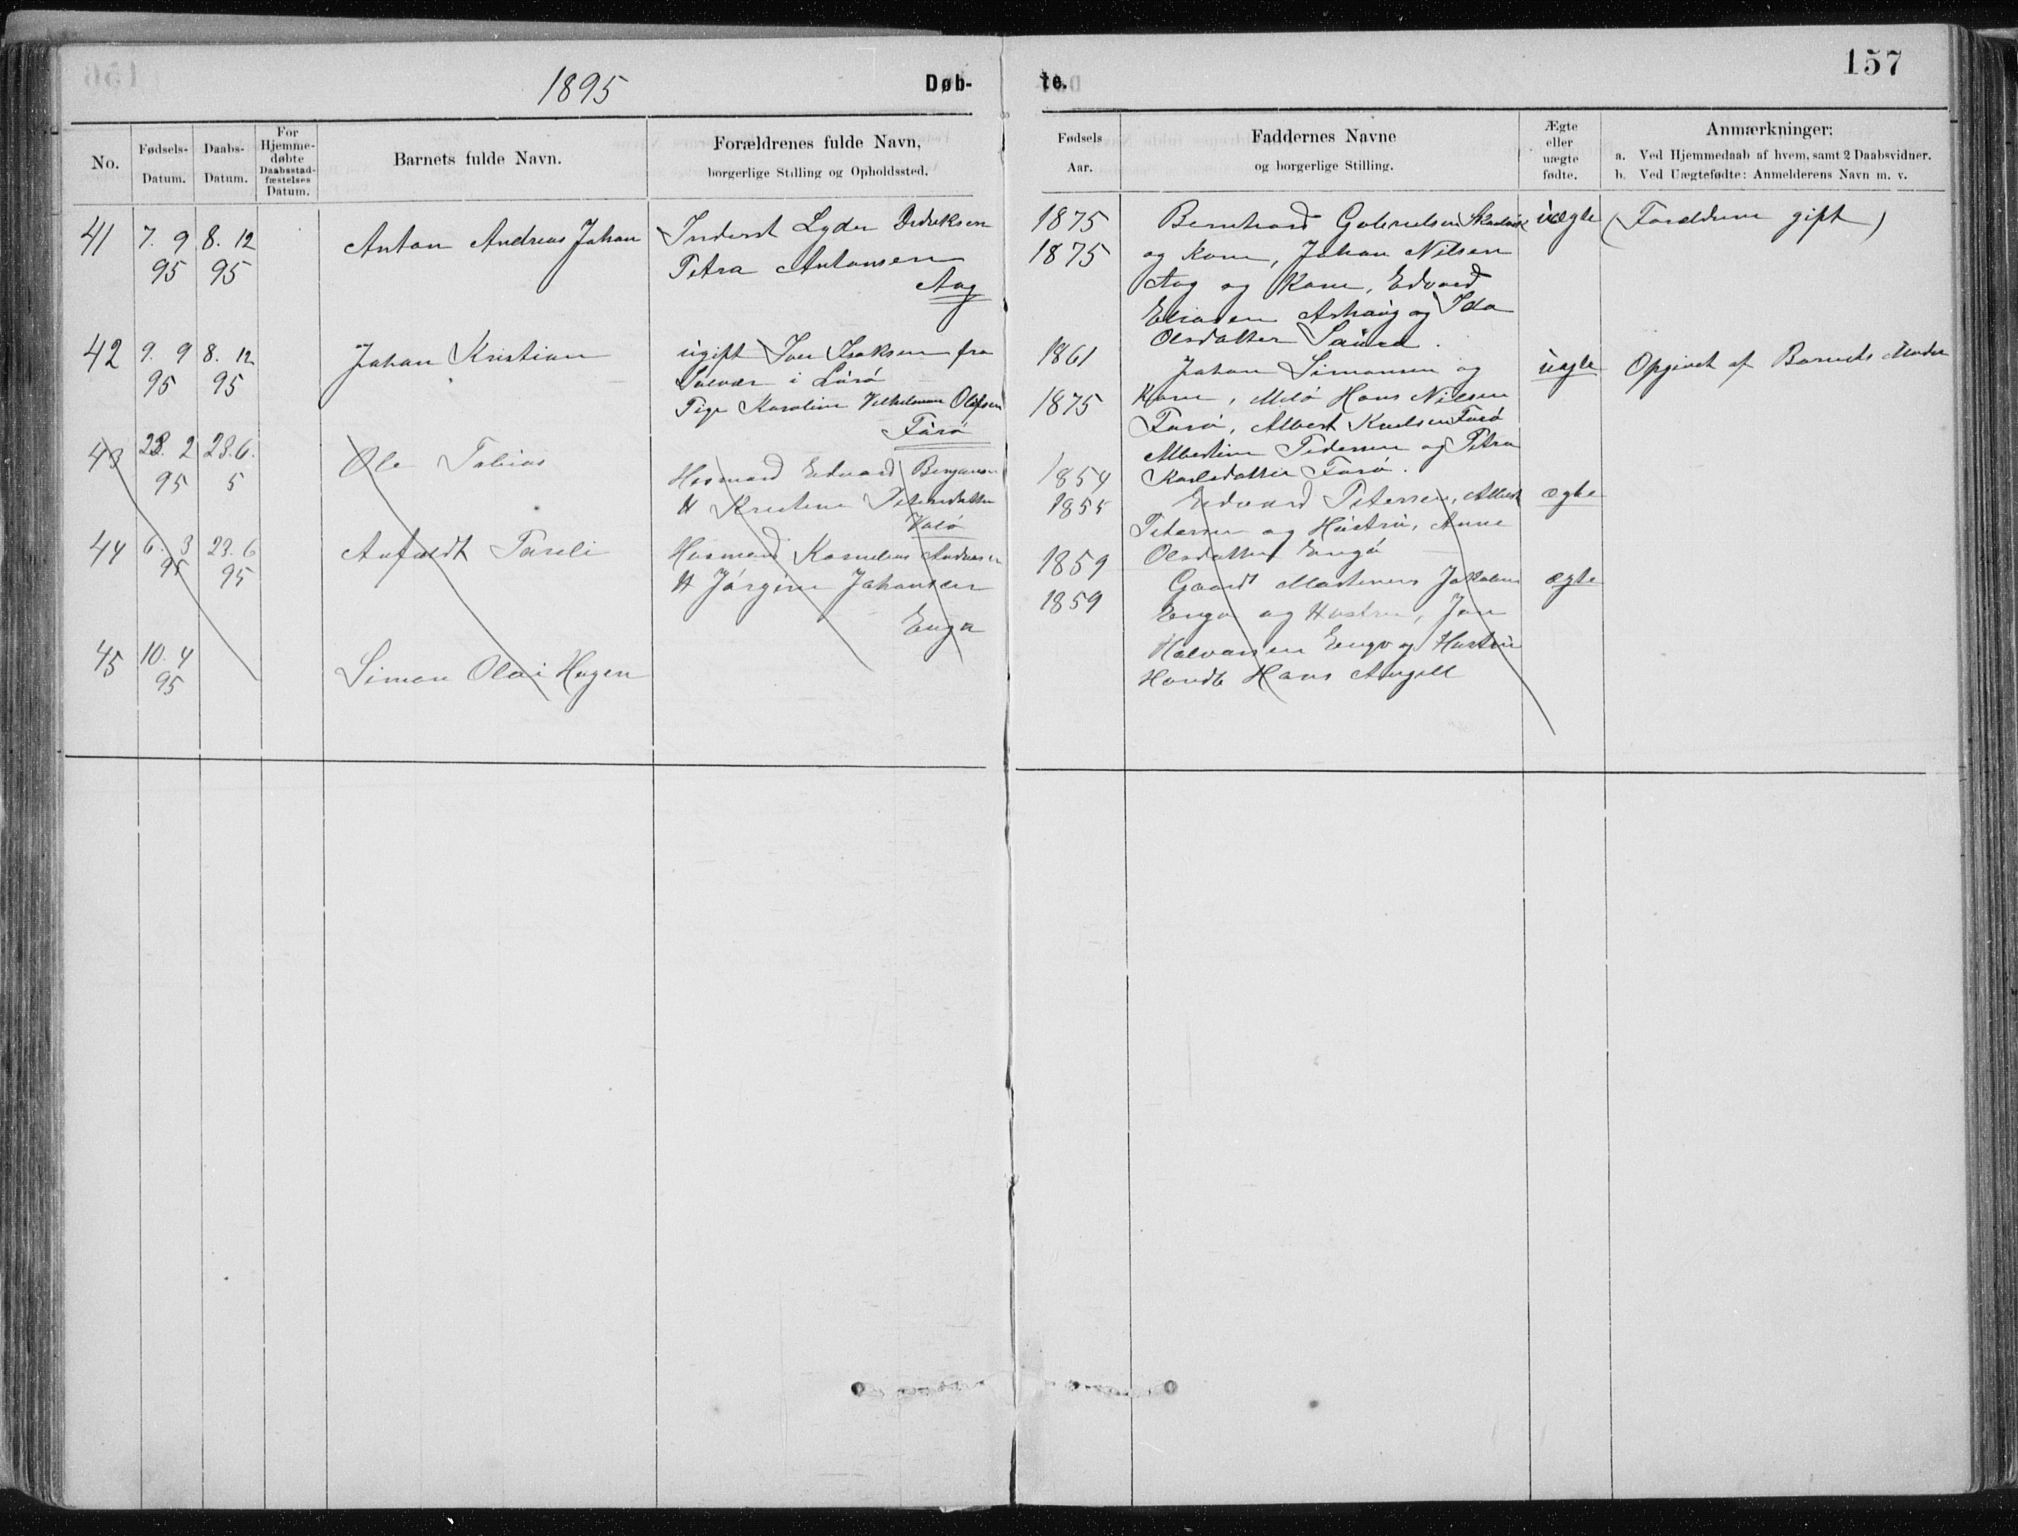 1895
Døb-
te.
157
No.
Fødsels-
Datum.
Daabs-
Datum.
For
Hjemme-
døbte
Daabsstad-
fæstelses
Datum.
Barnets fulde Navn.
Forældrenes fulde Navn,
borgerlige Stilling og Opholdssted.
Fødsels
Aar.
Faddernes Navne
og borgerlige Stilling.
Ægte
eller
uægte
fødte.
Anmærkninger:
a. Ved Hjemmedaab af hvem, samt 2 Daabsvidner.
b. Ved Uægtefødte: Anmelderens Navn m. v.
41
7. 9
95
8. 12
95
Anton Andreas Johan
Inderst Lyder Dedriksen
Petra Antonsen
Aag
1875
1875
Bernhard Gabrielsen
og Kone, Johan Nilsen
Aag og Kone, Edvard
Eliasen Ashaug og Ida
Olsdatter
uægte
(Forældrene gift)
42
9. 9
95
8. 12
95
Johan Kristian
ugift Iver Isaksen fra
i Lurø
Pige Karoline Vilhelmine Olofsen
Farø
1861
1875
Johan Simonsen og
Kone, Hans Nilsen
Farø, Albert Knelsen Farø
Albertine Pedersen og Petra
Karlsdatter Farø.
uægte
Opgivet af Barnets Moder
43
28. 2
95
23. 6.
5
Ole Tobias
Husmand Edvard Benjamin
H Kristine Petersdatter
Valø
1854
1855
Edvard Petersen, Albert
Petersen og Hustru, Anne
Olsdatter Engø
ægte
44
6. 3
95
23. 6
95
Husmand Kornelius Andreasen
H Jørgine Johansen
Enga
1859
1859
Gaard Martinus Jakobsen
Engø og Hustru, Jon
Halvorsen Engø og Hustru
Handb Hans Angell
ægte
45
10. 4
95
Simon Olai Hagen